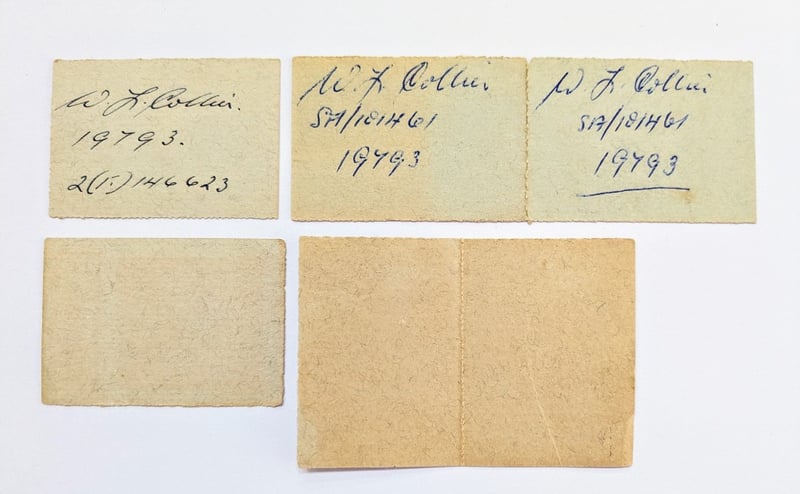 W. L. Collier.
19793.
2(T.)146623
W. L. Collier
SA/181461
19793
W. L. Collier
SA/181461
19793